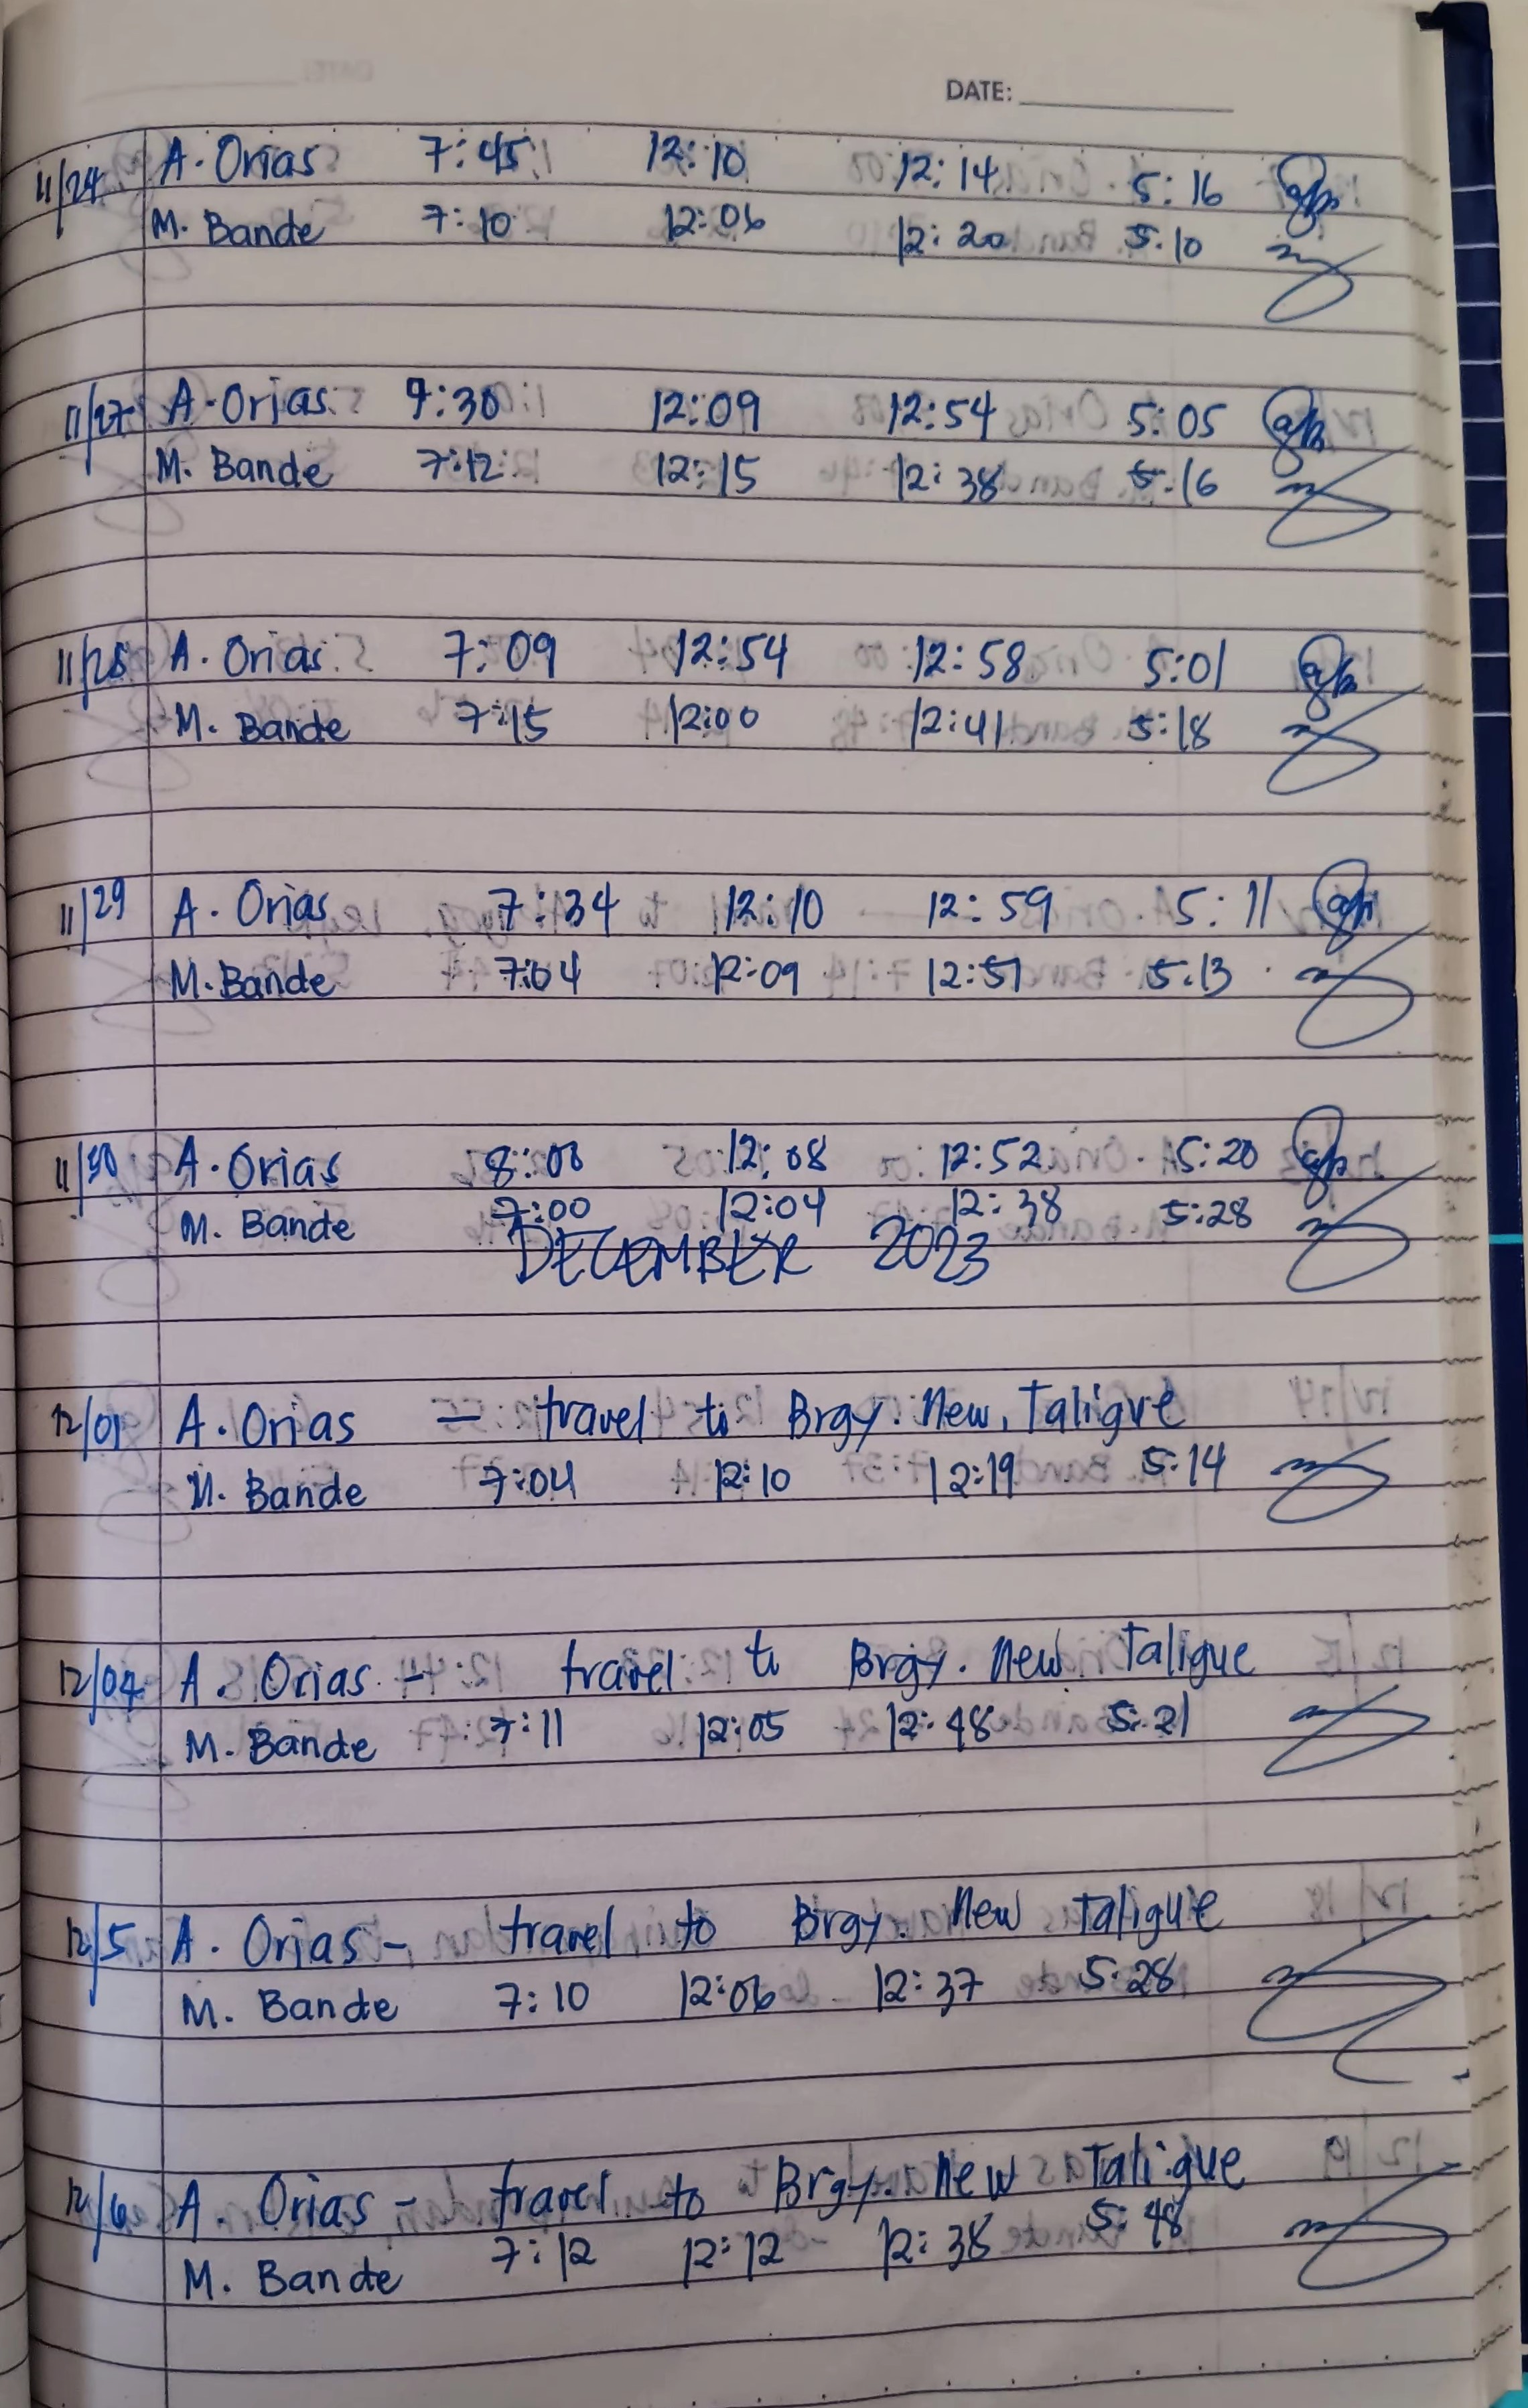 DATE:
11/24 A. Orias 7:45 12:10 12:14 5:16
M. Bande 7:10 12:06 12:20 5:10
11/27 A. Orias 9:30 12:09 12:54 5:05
M. Bande 7:12 12:15 12:38 5:16
11/28 A. Orias 7:09 12:54 12:58 5:01
M. Bande 7:15 12:00 12:41 5:18
11/29 A. Orias 7:34 12:10 12:59 5:11
M. Bande 7:04 12:09 12:51 5:13
11/30 A. Orias 8:00 12:08 12:52 5:20
M. Bande 7:00 12:04 12:38 5:28
DECEMBER 2023
12/01 A. Orias - travel to Brgy. New Taligue
M. Bande 7:04 12:10 12:19 5:14
12/04 A. Orias - travel to Brgy. New Taligue
M. Bande 7:11 12:05 12:48 5:21
12/5 A. Orias - travel to Brgy. New Taligue
M. Bande 7:10 12:06 12:37 5:28
12/6 A. Orias - travel to Brgy. New Taligue
M. Bande 7:12 12:12 12:38 5:48